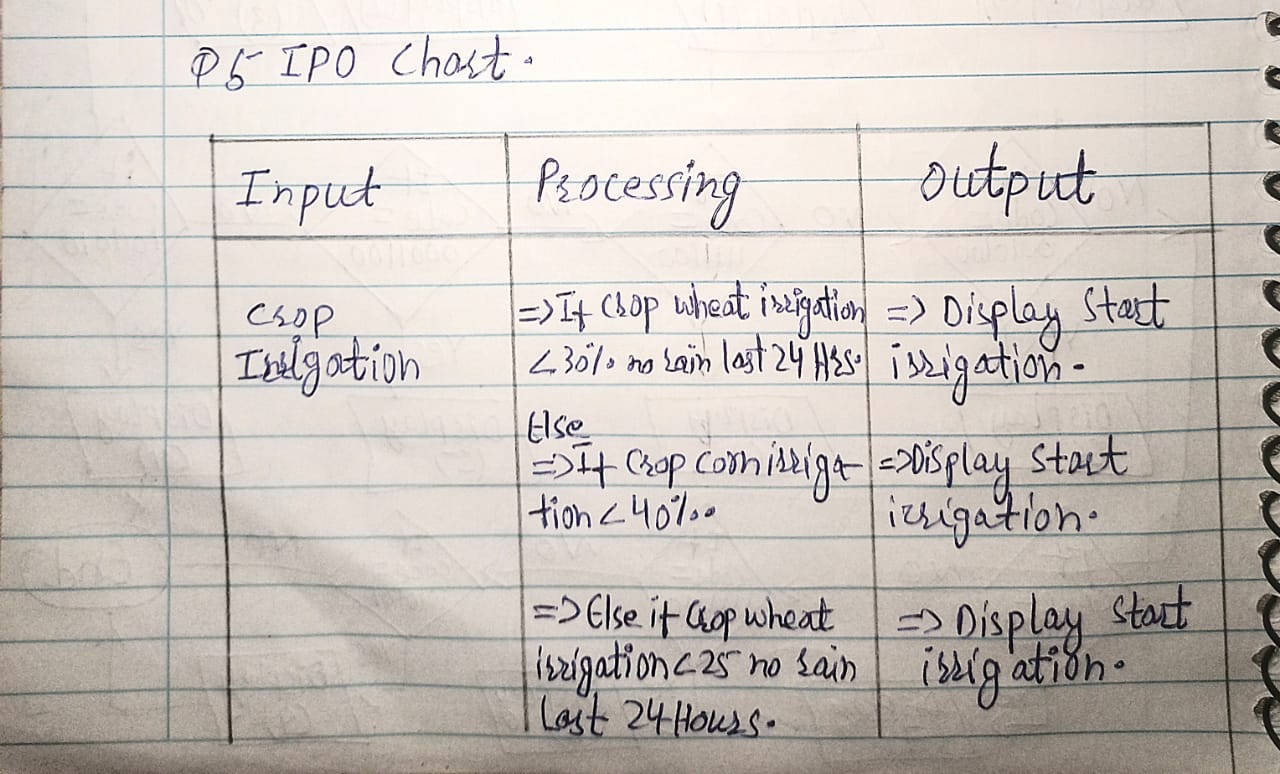 P5 IPO Chart.
Input
Processing
Output
Crop
Irrigation
=> If Crop wheat irrigation
<30% no rain last 24 Hrs.
=> Display Start
irrigation.
Else
=> If Crop corn irriga
tion < 40%.
=> Display Start
irrigation.
=> Else if Crop wheat
irrigation < 25 no rain
last 24 Hours.
=> Display Start
irrigation.